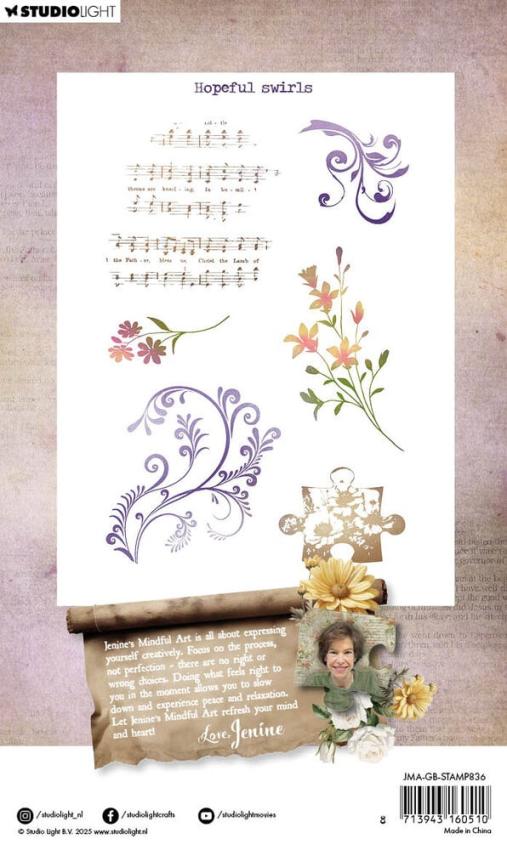 STUDIOLIGHT
Hopeful swirls
throne are kneel - ing. In hu - mil - i
t the Fath - er, bless us, Christ the Lamb of
Jenine's Mindful Art is all about expressing
yourself creatively. Focus on the process,
not perfection - there are no right or
wrong choices. Doing what feels right to
you in the moment allows you to slow
down and experience peace and relaxation.
Let Jenine's Mindful Art refresh your mind
and heart!
Love, Jenine
JMA-GB-STAMP836
8 713943 160510
Made in China
/studiolight_nl
/studiolightcrafts
/studiolightmovies
© Studio Light B.V. 2025 www.studiolight.nl